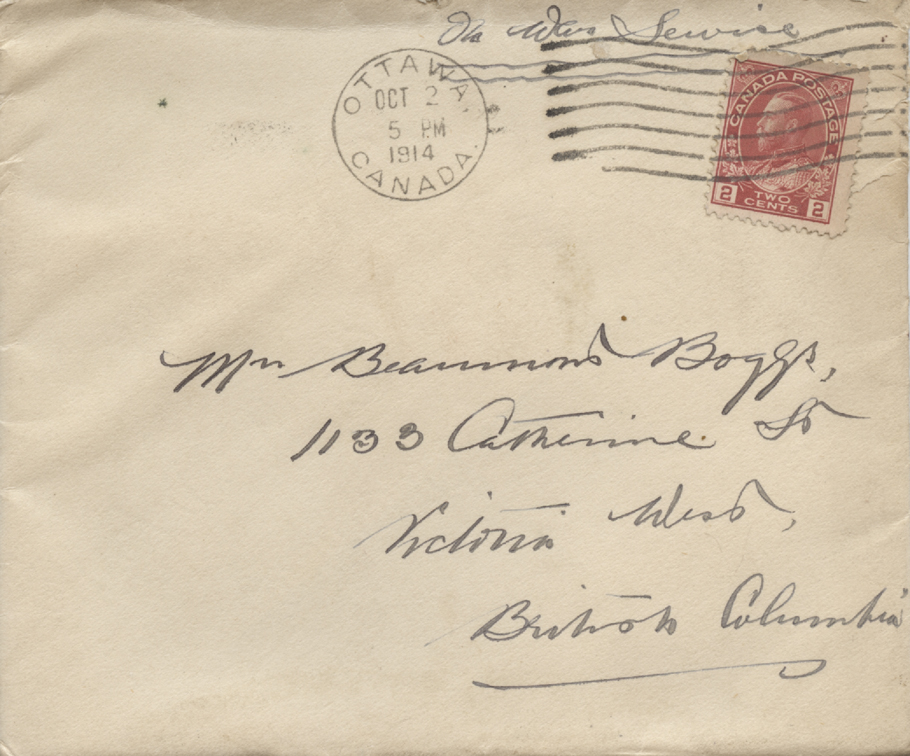 On War Service
OTTAWA,
OCT 2
5 PM
1914
CANADA.
CANADA POSTAGE
2 TWO CENTS 2
Mrs Beaumont Boggs,
1133 Catherine St
Victoria West,
British Columbia